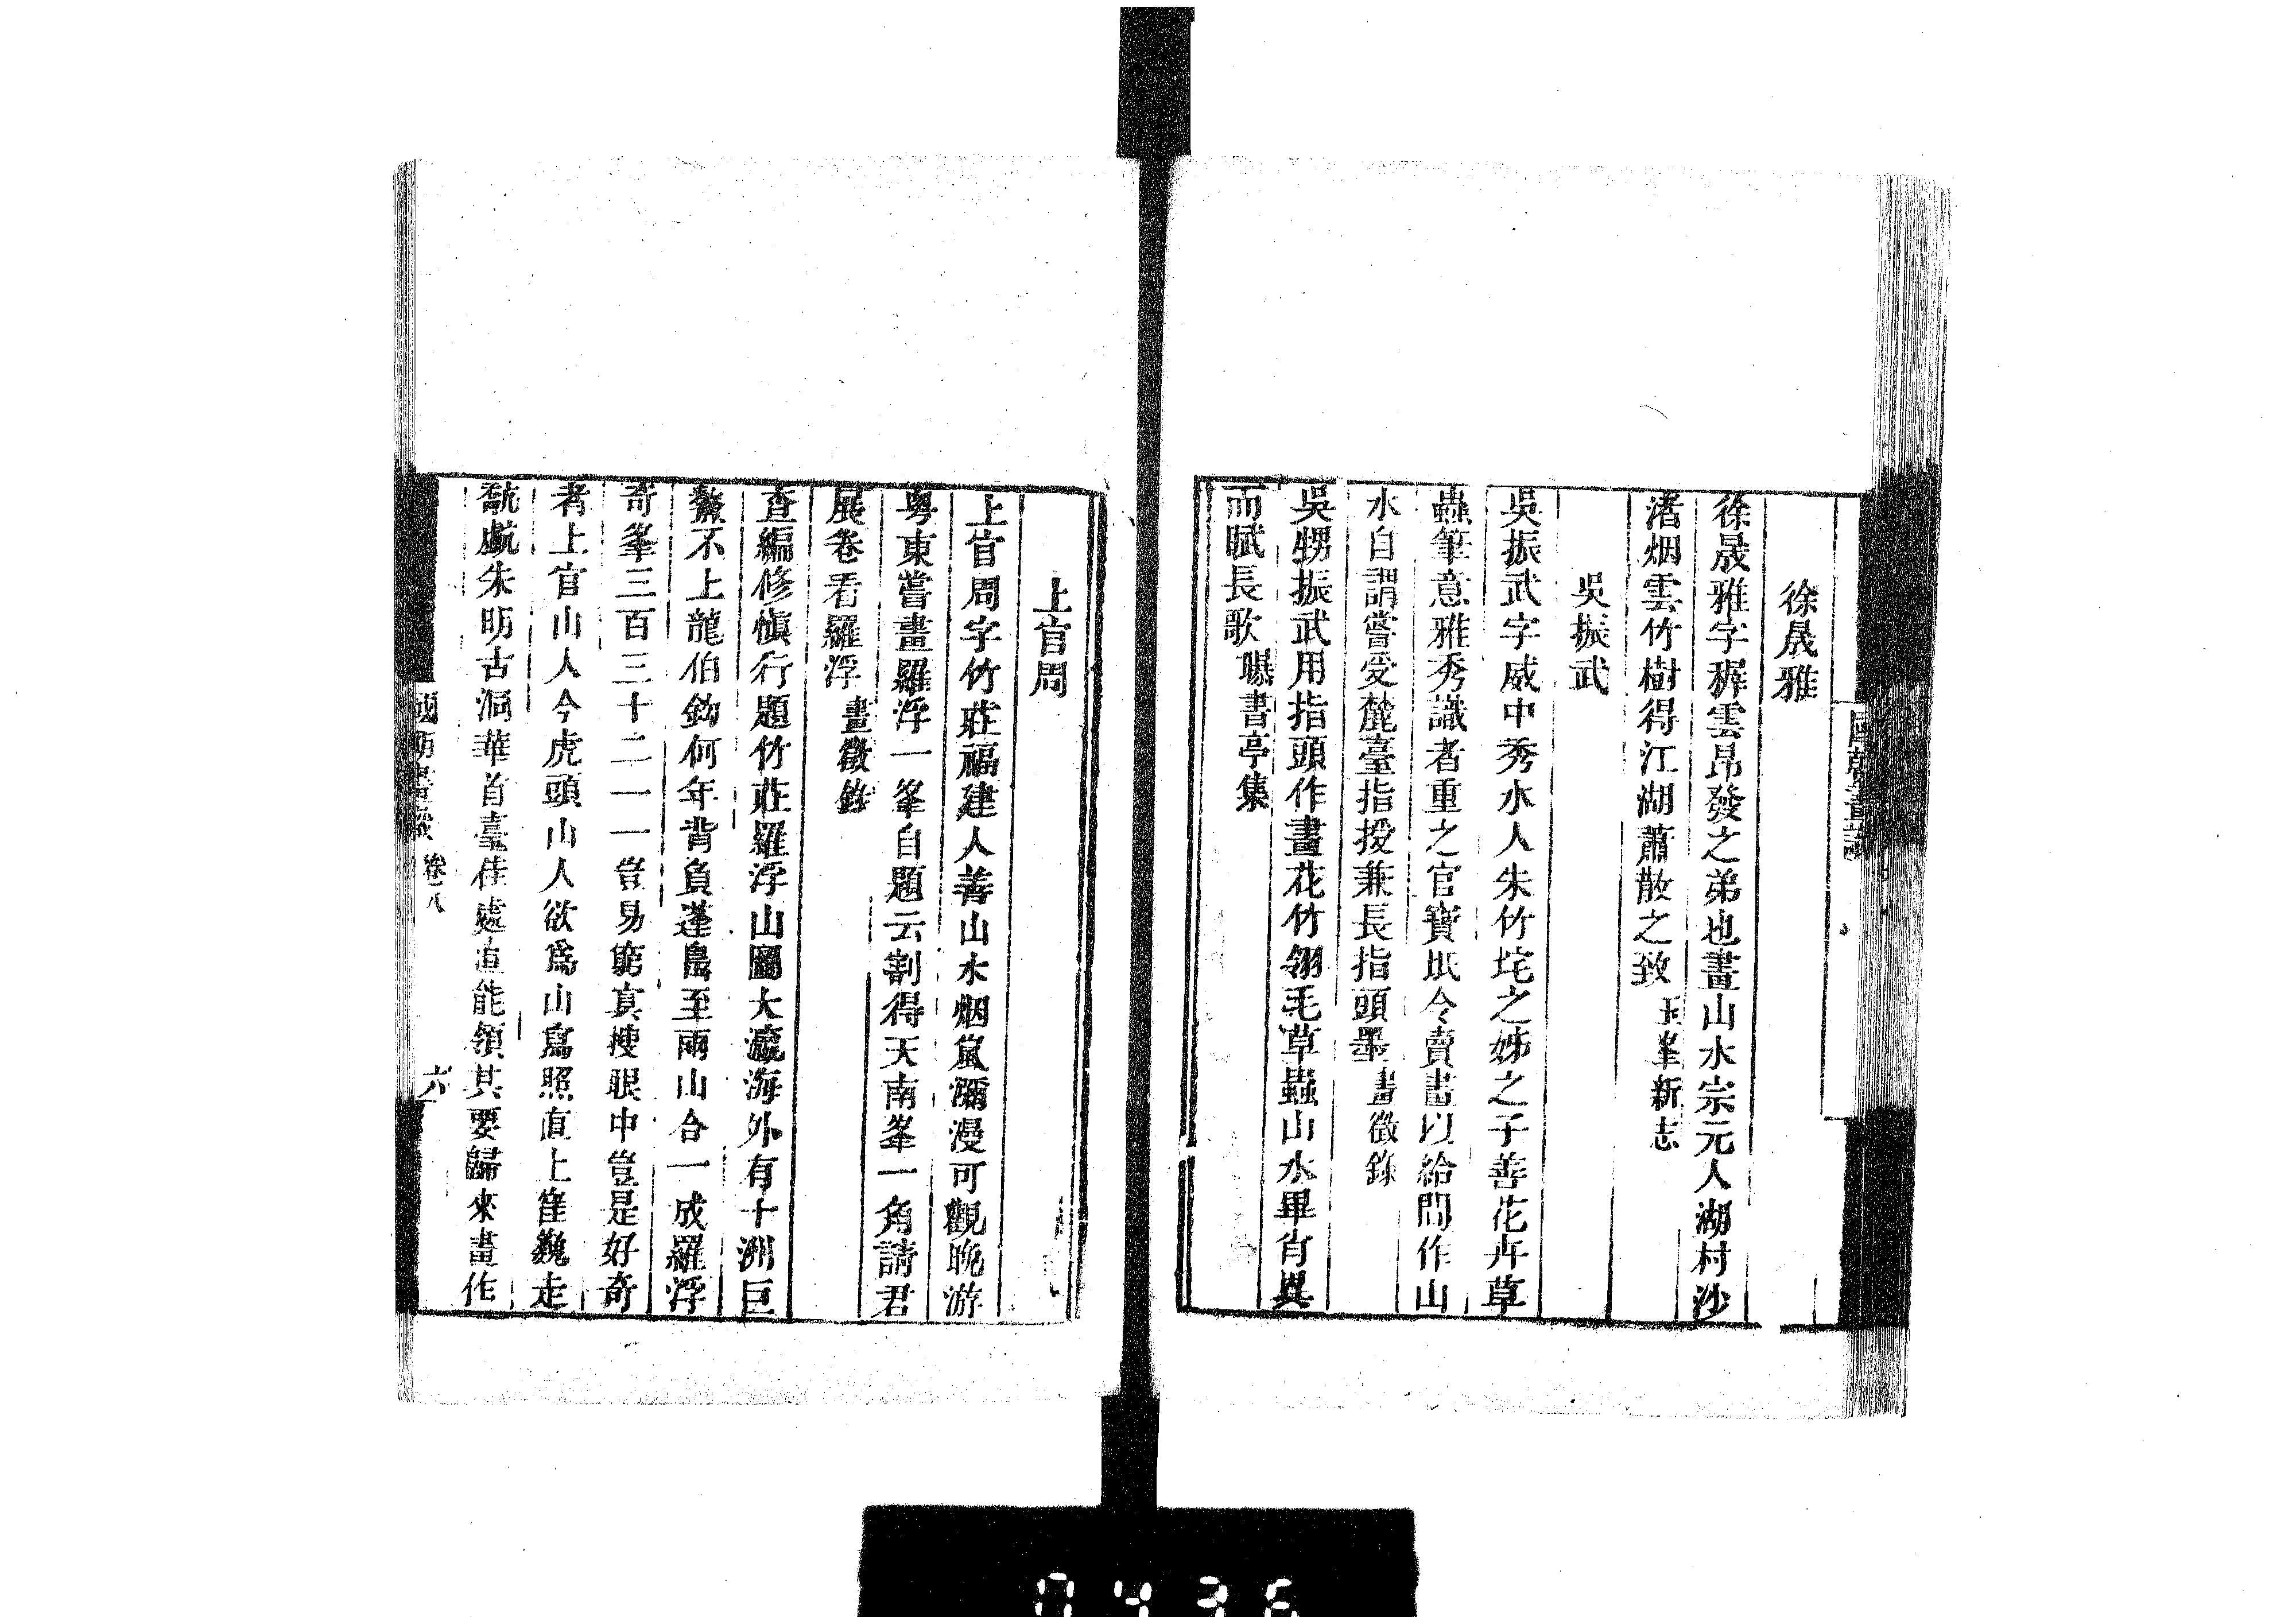 徐晟雅
徐晟雅字穉雲昂發之弟也畫山水宗元人湖村沙
渚烟雲竹樹得江湖蕭散之致玉峯新志
吳振武
吳振武字威中秀水人朱竹垞之姊之子善花卉草
蟲筆意雅秀識者重之官寶坻令賣畫以給間作山
水自謂嘗受麓臺指授兼長指頭墨畫徵錄
吳甥振武用指頭作畫花竹翎毛草蟲山水畢肖異
而賦長歌曝書亭集
上官周
上官周字竹莊福建人善山水烟嵐瀰漫可觀晚游
粵東嘗畫羅浮一峯自題云割得天南峯一角請君
展卷看羅浮畫徵錄
查編修慎行題竹莊羅浮山圖大瀛海外有十洲巨
鰲不上龍伯鉤何年背負蓬島至兩山合一成羅浮
奇峯三百三十二一一豈易窮真搜眼中豈是好奇
者上官山人今虎頭山人欲爲山寫照直上崔巍走
虓虎朱明古洞華首臺佳處直能領其要歸來畫作
國朝畫徵 卷八 六